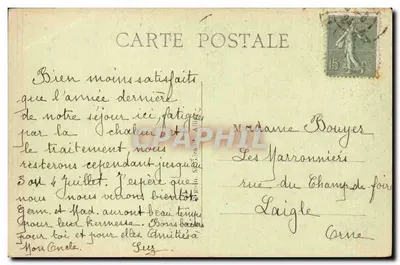 CARTE POSTALE
15
Bien moins satisfaits
que l'année dernière
de notre séjour ici, fatigués
par la chaleur et
le traitement, nous
resterons cependant jusqu'au
3 ou 4 Juillet. J'espère que
nous nous verrons bientôt.
Germ. et Mad. auront beau temps
pour leur kermesse. Bons baisers
pour toi et pour elles Amitiés à
Mon Oncle.
Madame Bouyer
Les Marronniers
rue du Champ de foire
Laigle
Orne